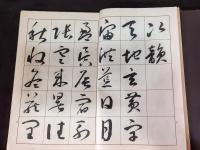 次韻
天地玄黃宇
宙洪荒日月
盈昃辰宿列
張寒來暑往
秋收冬藏閏